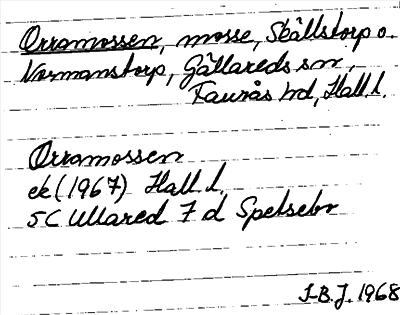 Orramossen, mosse, Skällstorp o.
Normanstorp, Gällareds sn,
Faurås hd, Hall l.
Orramossen
ek (1967) Hall l.
5C Ullared 7 d Spetsebr
J-B.J. 1968